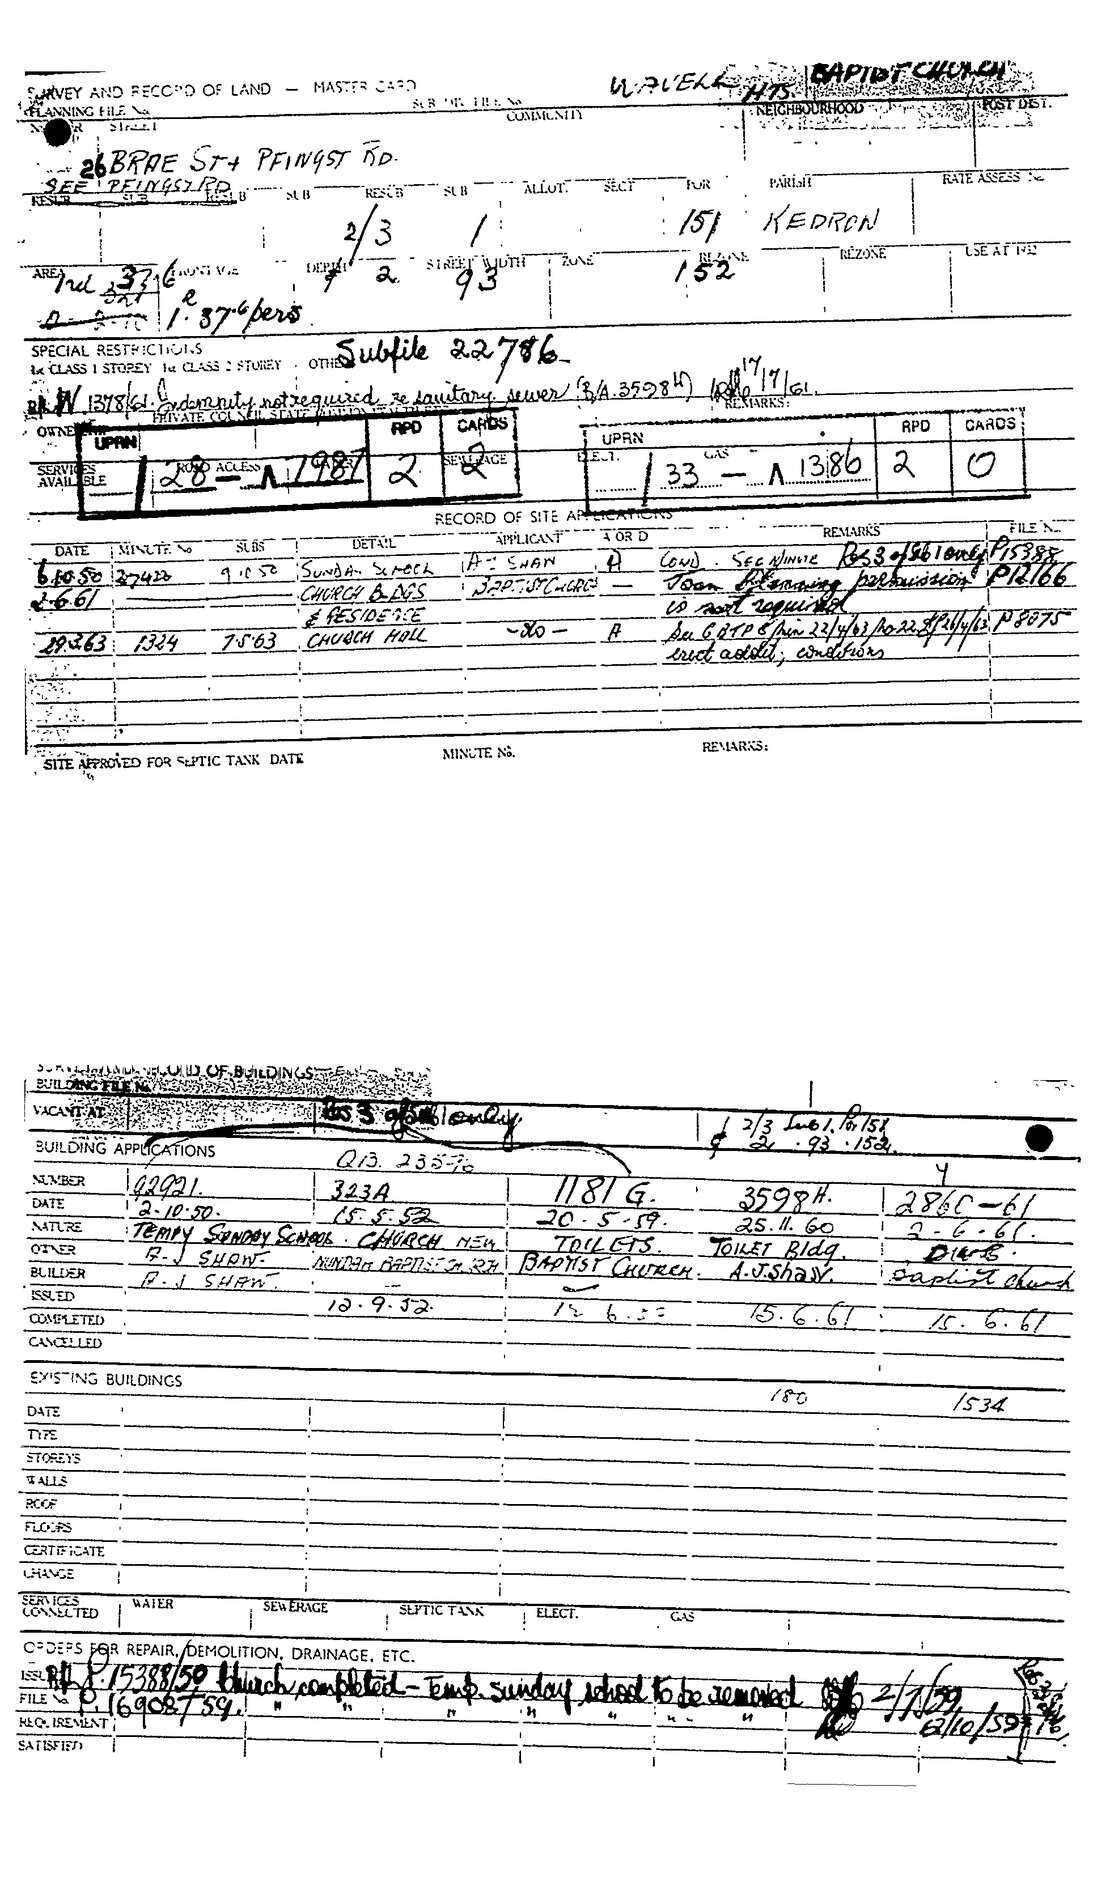 SURVEY AND RECORD OF LAND — MASTER CARD WAVELL HTS. BAPTIST CHURCH
PLANNING FILE No SUB DIV. FILE No COMMUNITY NEIGHBOURHOOD POST DIST.
STREET
26 BRAE ST & PFINGST RD.
SEE PFINGST RD
RESUB SUB RESUB SUB RESUB SUB ALLOT. SECT POR PARISH RATE ASSESS No
2/3 1 151 KEDRON
AREA FRONTAGE DEPTH STREET WIDTH ZONE REZONE REZONE USE AT 1952
& 2 93 152
1 37.6 pers
SPECIAL RESTRICTIONS
1st CLASS 1 STOREY 1st CLASS 2 STOREY OTHER Subfile 22786
1378/61. Indemnity not required re sanitary sewer (B/A.3598H) 17/7/61.
PRIVATE COUNCIL STATE REMARKS:
OWNERSHIP UPRN RPD CARDS UPRN RPD CARDS
SERVICES AVAILABLE ROAD ACCESS SEWERAGE ELECT. GAS
28 — Λ 1987 2 2 33 — Λ 1386 2 0
RECORD OF SITE APPLICATIONS
DATE MINUTE No SUBS DETAIL APPLICANT A OR D REMARKS FILE No.
6.10.50 27420 9.10.50 SUNDAY SCHOOL A J SHAW A COND. SEC MINUTE Res 3 of Sub 1 only P15388
2.6.61 CHURCH BLDGS BAPTIST CHURCH — Town Planning permission P12166
& RESIDENCE is not required
29.3.63 1324 7.5.63 CHURCH HALL —do— A P8075
erect addit; conditions
SITE APPROVED FOR SEPTIC TANK DATE MINUTE No. REMARKS:
SURVEY AND RECORD OF BUILDINGS
BUILDING FILE No
VACANT AT Res 3 of Sub 1 only. 2/3 Sub 1. Por 151
& 2 . 93 . 152.
BUILDING APPLICATIONS
NUMBER 92921. 323A 1181 G. 3598H. 286C-61
DATE 2.10.50. 15.5.52 20.5.59. 25.11.60 2.6.61.
NATURE TEMPY SUNDAY SCHOOL. CHURCH NEW TOILETS. TOILET Bldg.
OWNER A.J SHAW. NUNDAH BAPTIST CHURCH BAPTIST CHURCH. A.J.Shaw. Baptist Church
BUILDER A.J SHAW. —
ISSUED
COMPLETED 12.9.52. 15.6.61 15.6.61
CANCELLED
EXISTING BUILDINGS 180 1534
DATE
TYPE
STOREYS
WALLS
ROOF
FLOORS
CERTIFICATE
CHANGE
SERVICES CONNECTED WATER SEWERAGE SEPTIC TANK ELECT. GAS
ORDERS FOR REPAIR, DEMOLITION, DRAINAGE, ETC.
ISSUED P.15388/50 Church completed - Temp. sunday school to be removed 2/7/59.
FILE No P.16908/59. " " " " " " 12/10/59
REQUIREMENT
SATISFIED